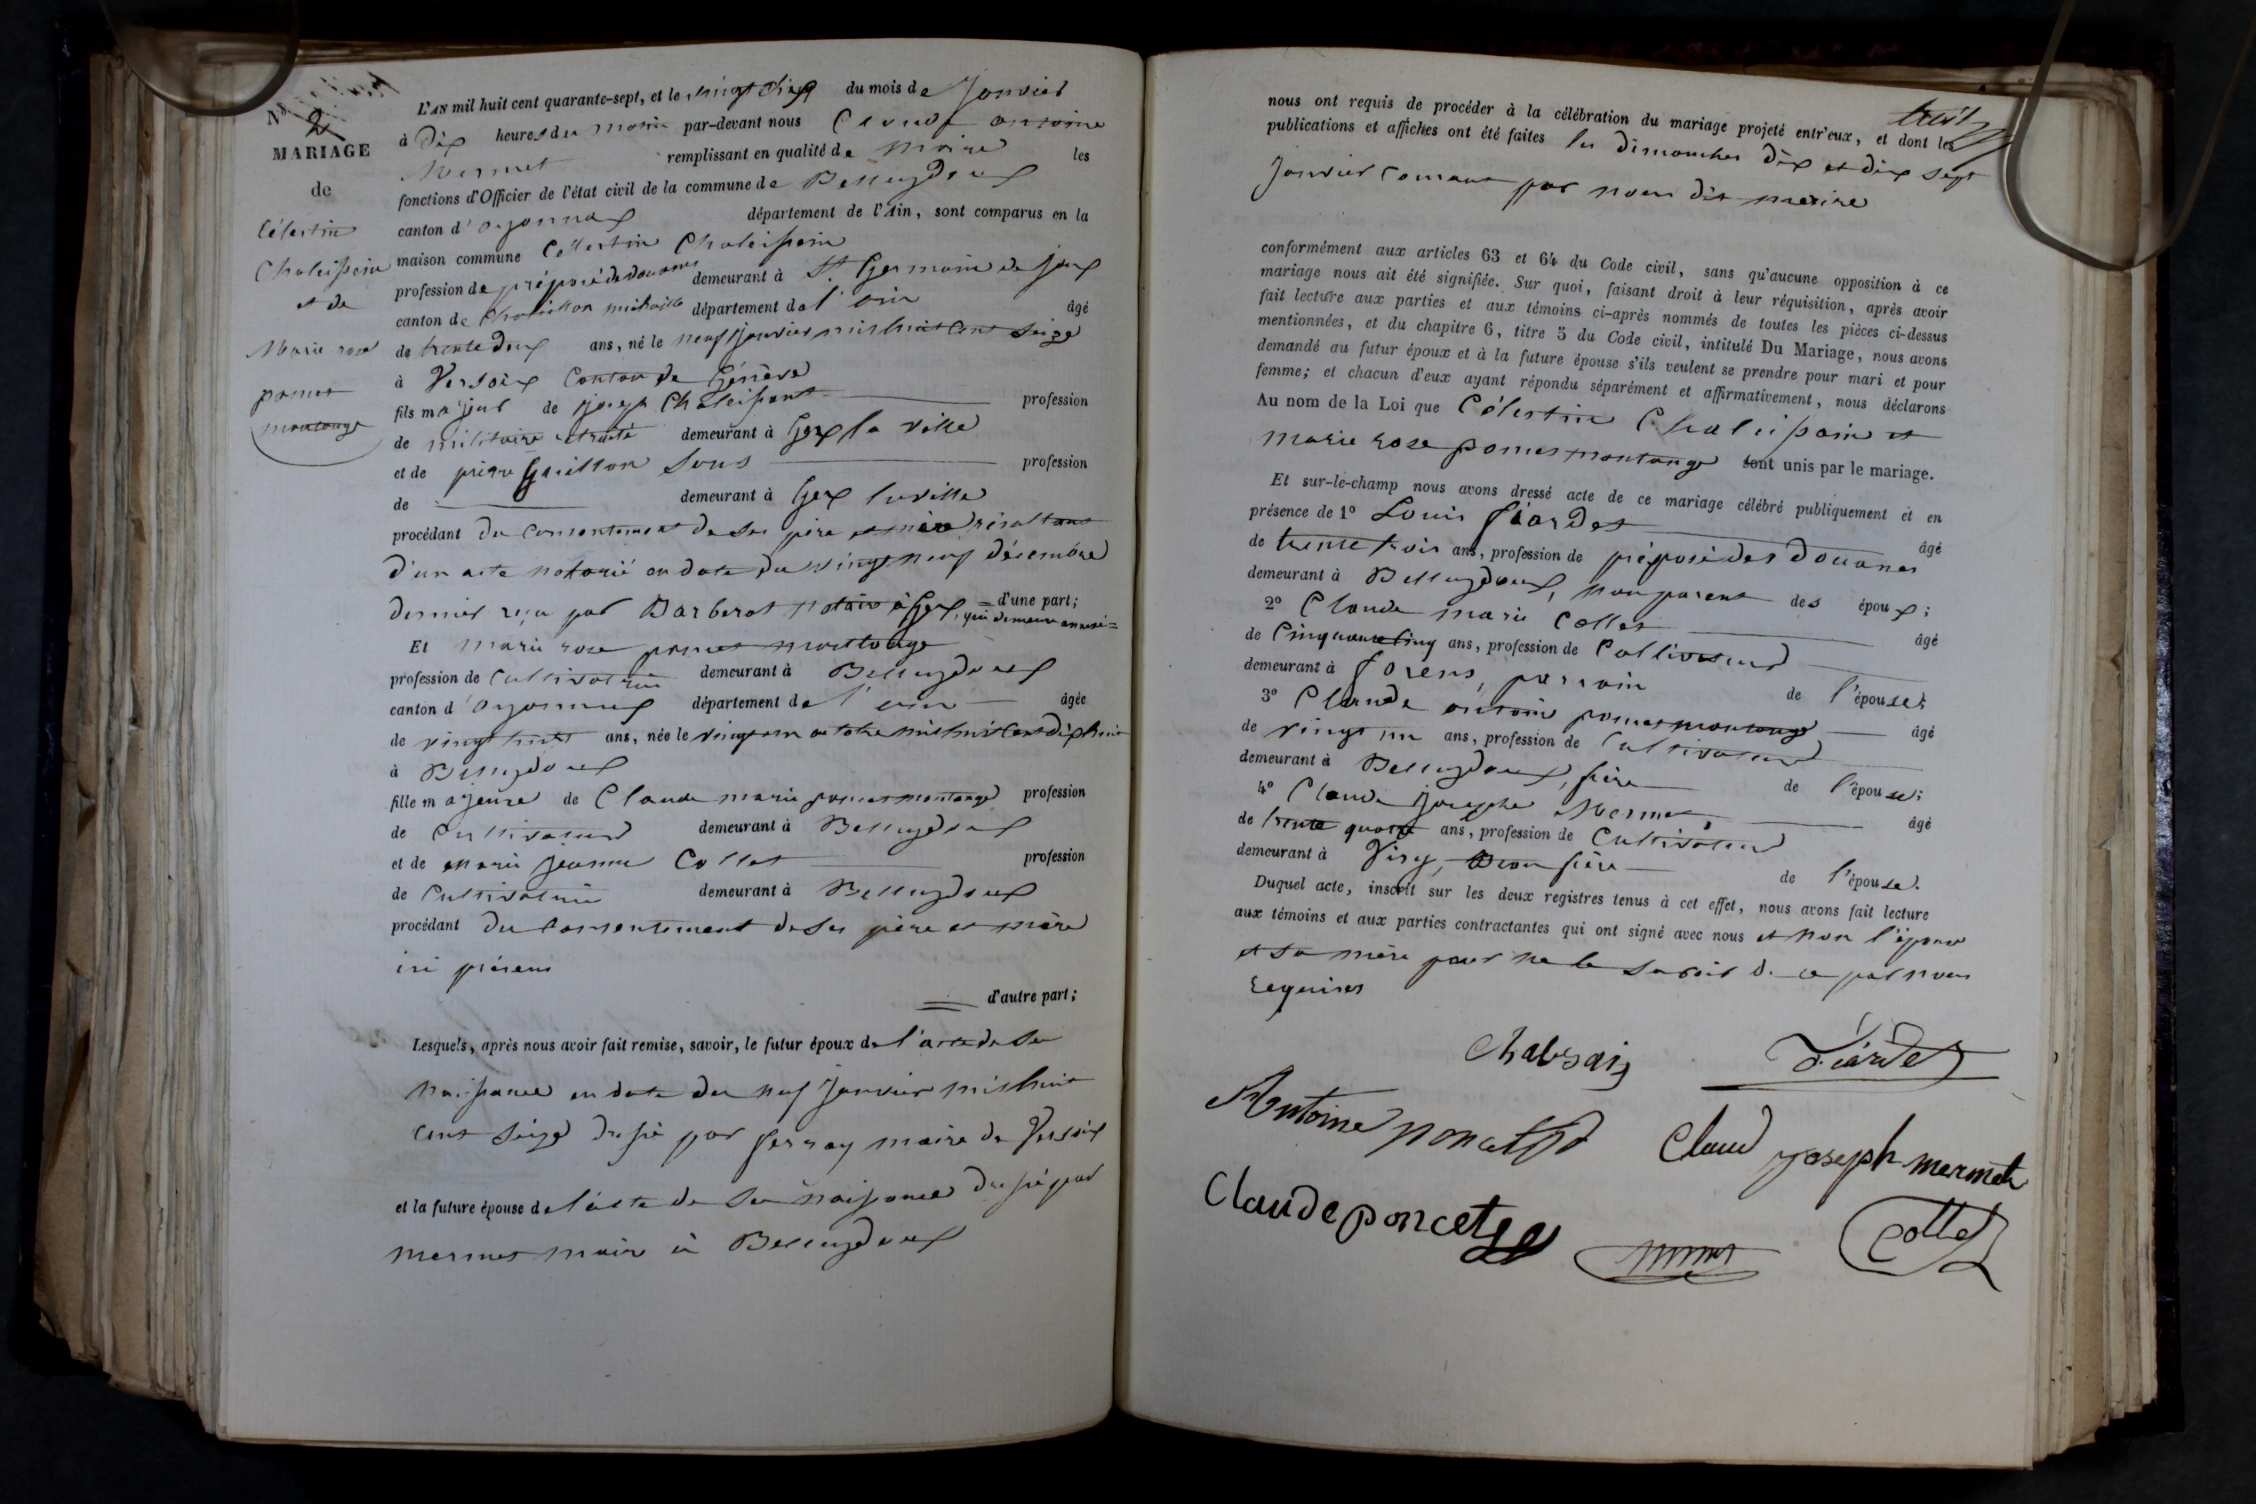 N°
2
MARIAGE
de
Célestin
Chaleissein
et de
Marie rose
poncet
montange
L'AN mil huit cent quarante-sept, et le vingt du mois de Janvier
à Dix heures du matin par-devant nous Claude antoine
Mermet remplissant en qualité de Maire les
fonctions d'Officier de l'état civil de la commune de Belleydoux
canton d'oyonnax département de l'Ain, sont comparus en la
maison commune Célestin Chaleissein
profession de préposé des douanes demeurant à St Germain de Joux
canton de Chatillon michaille département de l'ain âgé
de trente deux ans, né le neuf Janvier mil huit cent Seize
à Versoix Canton de Génève
fils majeur de Joseph profession
de militaire retraité demeurant à Gex la ville
et de profession
de demeurant à Gex la ville
procédant du Consentement de Ses père et mère résultant
d'un acte notarié en date du vingt neuf décembre
dernier reçu par Barberot notaire à Gex, qui demeure annexé = d'une part;
Et Marie rose poncet montange
profession de Cultivatrice demeurant à Belleydoux
canton d'oyonnax département de l'ain âgée
de vingt huit ans, née le vingt un octobre mil huit cent dix huit
à Belleydoux
fille majeure de Claude marie poncet montange profession
de Cultivateur demeurant à Belleydoux
et de Marie Jeanne Collet profession
de Cultivatrice demeurant à Belleydoux
procédant du Consentement de Ses père et mère
ici présens
d'autre part;
Lesquels, après nous avoir fait remise, savoir, le futur époux de l'acte de Sa
Naissance en date du neuf Janvier mil huit
Cent Seize Dressé par maire de Versoix
et la future épouse de l'acte de Sa naissance Dressé par
Mermet maire à Belleydoux
nous ont requis de procéder à la célébration du mariage projeté entr'eux, et dont les
publications et affiches ont été faites les dimanches dix et dix Sept
Janvier Courant par nous dit maire
conformément aux articles 63 et 64 du Code civil, sans qu'aucune opposition à ce
mariage nous ait été signifiée. Sur quoi, faisant droit à leur réquisition, après avoir
fait lecture aux parties et aux témoins ci-après nommés de toutes les pièces ci-dessus
mentionnées, et du chapitre 6, titre 5 du Code civil, intitulé Du Mariage, nous avons
demandé au futur époux et à la future épouse s'ils veulent se prendre pour mari et pour
femme; et chacun d'eux ayant répondu séparément et affirmativement, nous déclarons
Au nom de la Loi que Célestin Chaleissein et
Marie rose poncet montange sont unis par le mariage.
Et sur-le-champ nous avons dressé acte de ce mariage célébré publiquement et en
présence de 1° Louis âgé
de trente trois ans, profession de préposé des Douanes
demeurant à Belleydoux, non parent des époux;
2° Claude marie Collet âgé
de Cinquante Cinq ans, profession de Cultivateur
demeurant à forens, parrain de l'épouse;
3° Claude antoine poncet montange âgé
de vingt un ans, profession de Cultivateur
demeurant à Belleydoux, frère de l'épouse;
4° Claude Josephe Mermet âgé
de trente quatre ans, profession de Cultivateur
demeurant à Viry, Beau frère de l'épouse.
Duquel acte, inscrit sur les deux registres tenus à cet effet, nous avons fait lecture
aux témoins et aux parties contractantes qui ont signé avec nous et non l'épouse
et Sa mère pour ne le Savoir de ce par nous
requises
Antoine poncet
Claud joseph mermet
Claude poncet
Collet